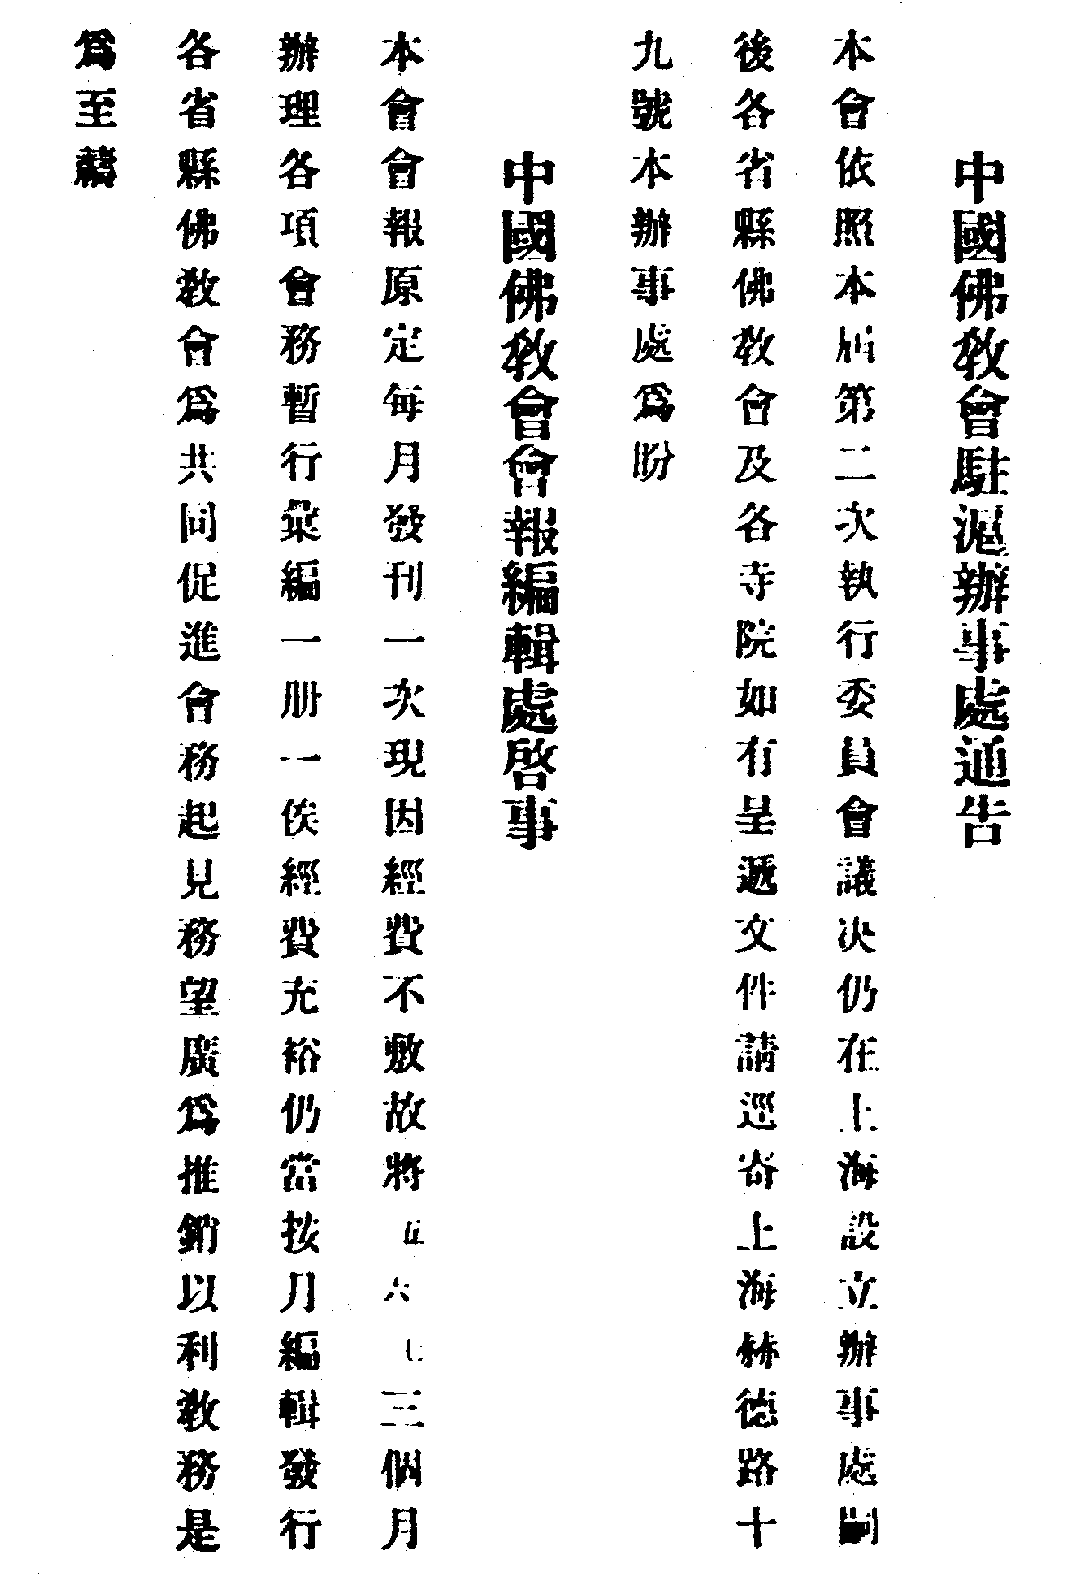 中國佛敎會駐滬辦事處通告
本會依照本届第二次執行委員會議决仍在上海設立辦事處嗣
後各省縣佛敎會及各寺院如有呈遞文件請逕寄上海赫德路十
九號本辦事處爲盼
中國佛敎會會報編輯處啓事
本會會報原定每月發刊一次現因經費不敷故將五六七三個月
辦理各項會務暫行彙編一册一俟經費充裕仍當按月編輯發行
各省縣佛敎會爲共同促進會務起見務望廣爲推銷以利敎務是
爲至禱